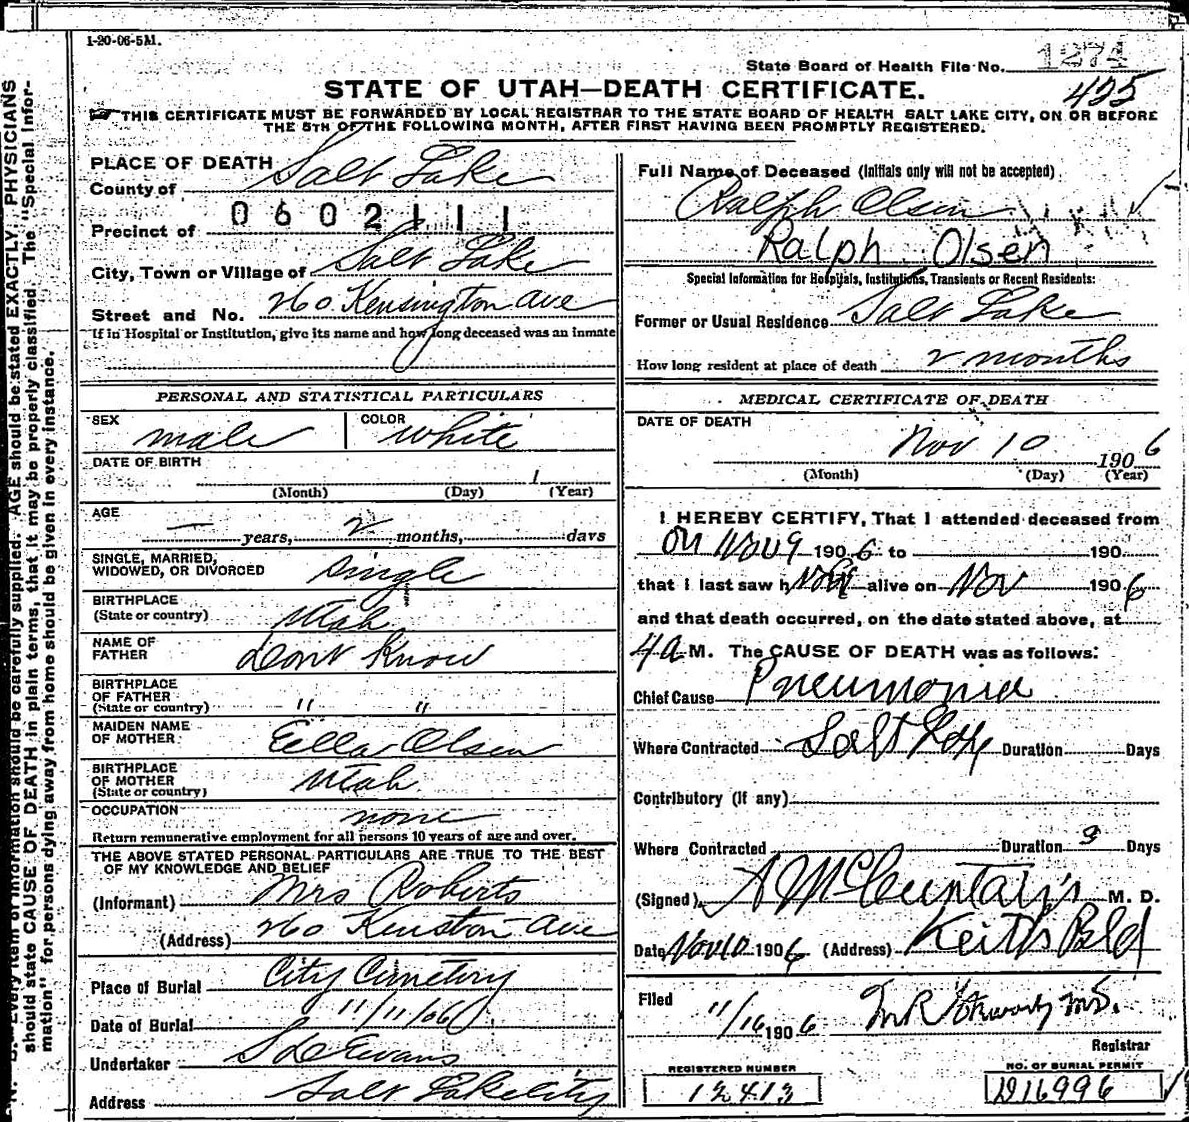 1-20-06-5M.
State Board of Health File No. 1274
STATE OF UTAH—DEATH CERTIFICATE.
425
THIS CERTIFICATE MUST BE FORWARDED BY LOCAL REGISTRAR TO THE STATE BOARD OF HEALTH SALT LAKE CITY, ON OR BEFORE
THE 5TH OF THE FOLLOWING MONTH, AFTER FIRST HAVING BEEN PROMPTLY REGISTERED.
PLACE OF DEATH
County of Salt Lake
0602111
Precinct of
City, Town or Village of Salt Lake
Street and No. 260 Kensington Ave
If in Hospital or Institution, give its name and how long deceased was an inmate
Full Name of Deceased (Initials only will not be accepted)
Ralph Olsen
Ralph Olsen
Special Information for Hospitals, Institutions, Transients or Recent Residents:
Former or Usual Residence Salt Lake
How long resident at place of death 2 months
PERSONAL AND STATISTICAL PARTICULARS
SEX male COLOR white
DATE OF BIRTH 1
(Month) (Day) (Year)
AGE — years, 2 months, days
SINGLE, MARRIED,
WIDOWED, OR DIVORCED single
BIRTHPLACE
(State or country) Utah
NAME OF
FATHER Dont Know
BIRTHPLACE
OF FATHER
(State or country) " "
MAIDEN NAME
OF MOTHER Eella Olsen
BIRTHPLACE
OF MOTHER
(State or country) Utah
OCCUPATION none
Return remunerative employment for all persons 10 years of age and over.
THE ABOVE STATED PERSONAL PARTICULARS ARE TRUE TO THE BEST
OF MY KNOWLEDGE AND BELIEF
(Informant) Mrs Roberts
(Address) 260 Kenston Ave
Place of Burial City Cemetery
Date of Burial 11/11/06
Undertaker S D Evans
Address Salt Lake City
MEDICAL CERTIFICATE OF DEATH
DATE OF DEATH
Nov 10 1906
(Month) (Day) (Year)
I HEREBY CERTIFY, That I attended deceased from
on Nov 9 1906 to 190
that I last saw h alive on Nov 1906
and that death occurred, on the date stated above, at
4 a M. The CAUSE OF DEATH was as follows:
Chief Cause Pneumonia
Where Contracted Salt Duration Days
Contributory (if any)
Where Contracted Duration 3 Days
(Signed) M. D.
Date Nov 10 1906 (Address) Keith Bld
Filed 11/16 1906 M.D.
Registrar
REGISTERED NUMBER
12413
NO. OF BURIAL PERMIT
D16996
N. B.—Every item of information should be carefully supplied. AGE should be stated EXACTLY. PHYSICIANS
should state CAUSE OF DEATH in plain terms, that it may be properly classified. The "Special Infor-
mation" for persons dying away from home should be given in every instance.